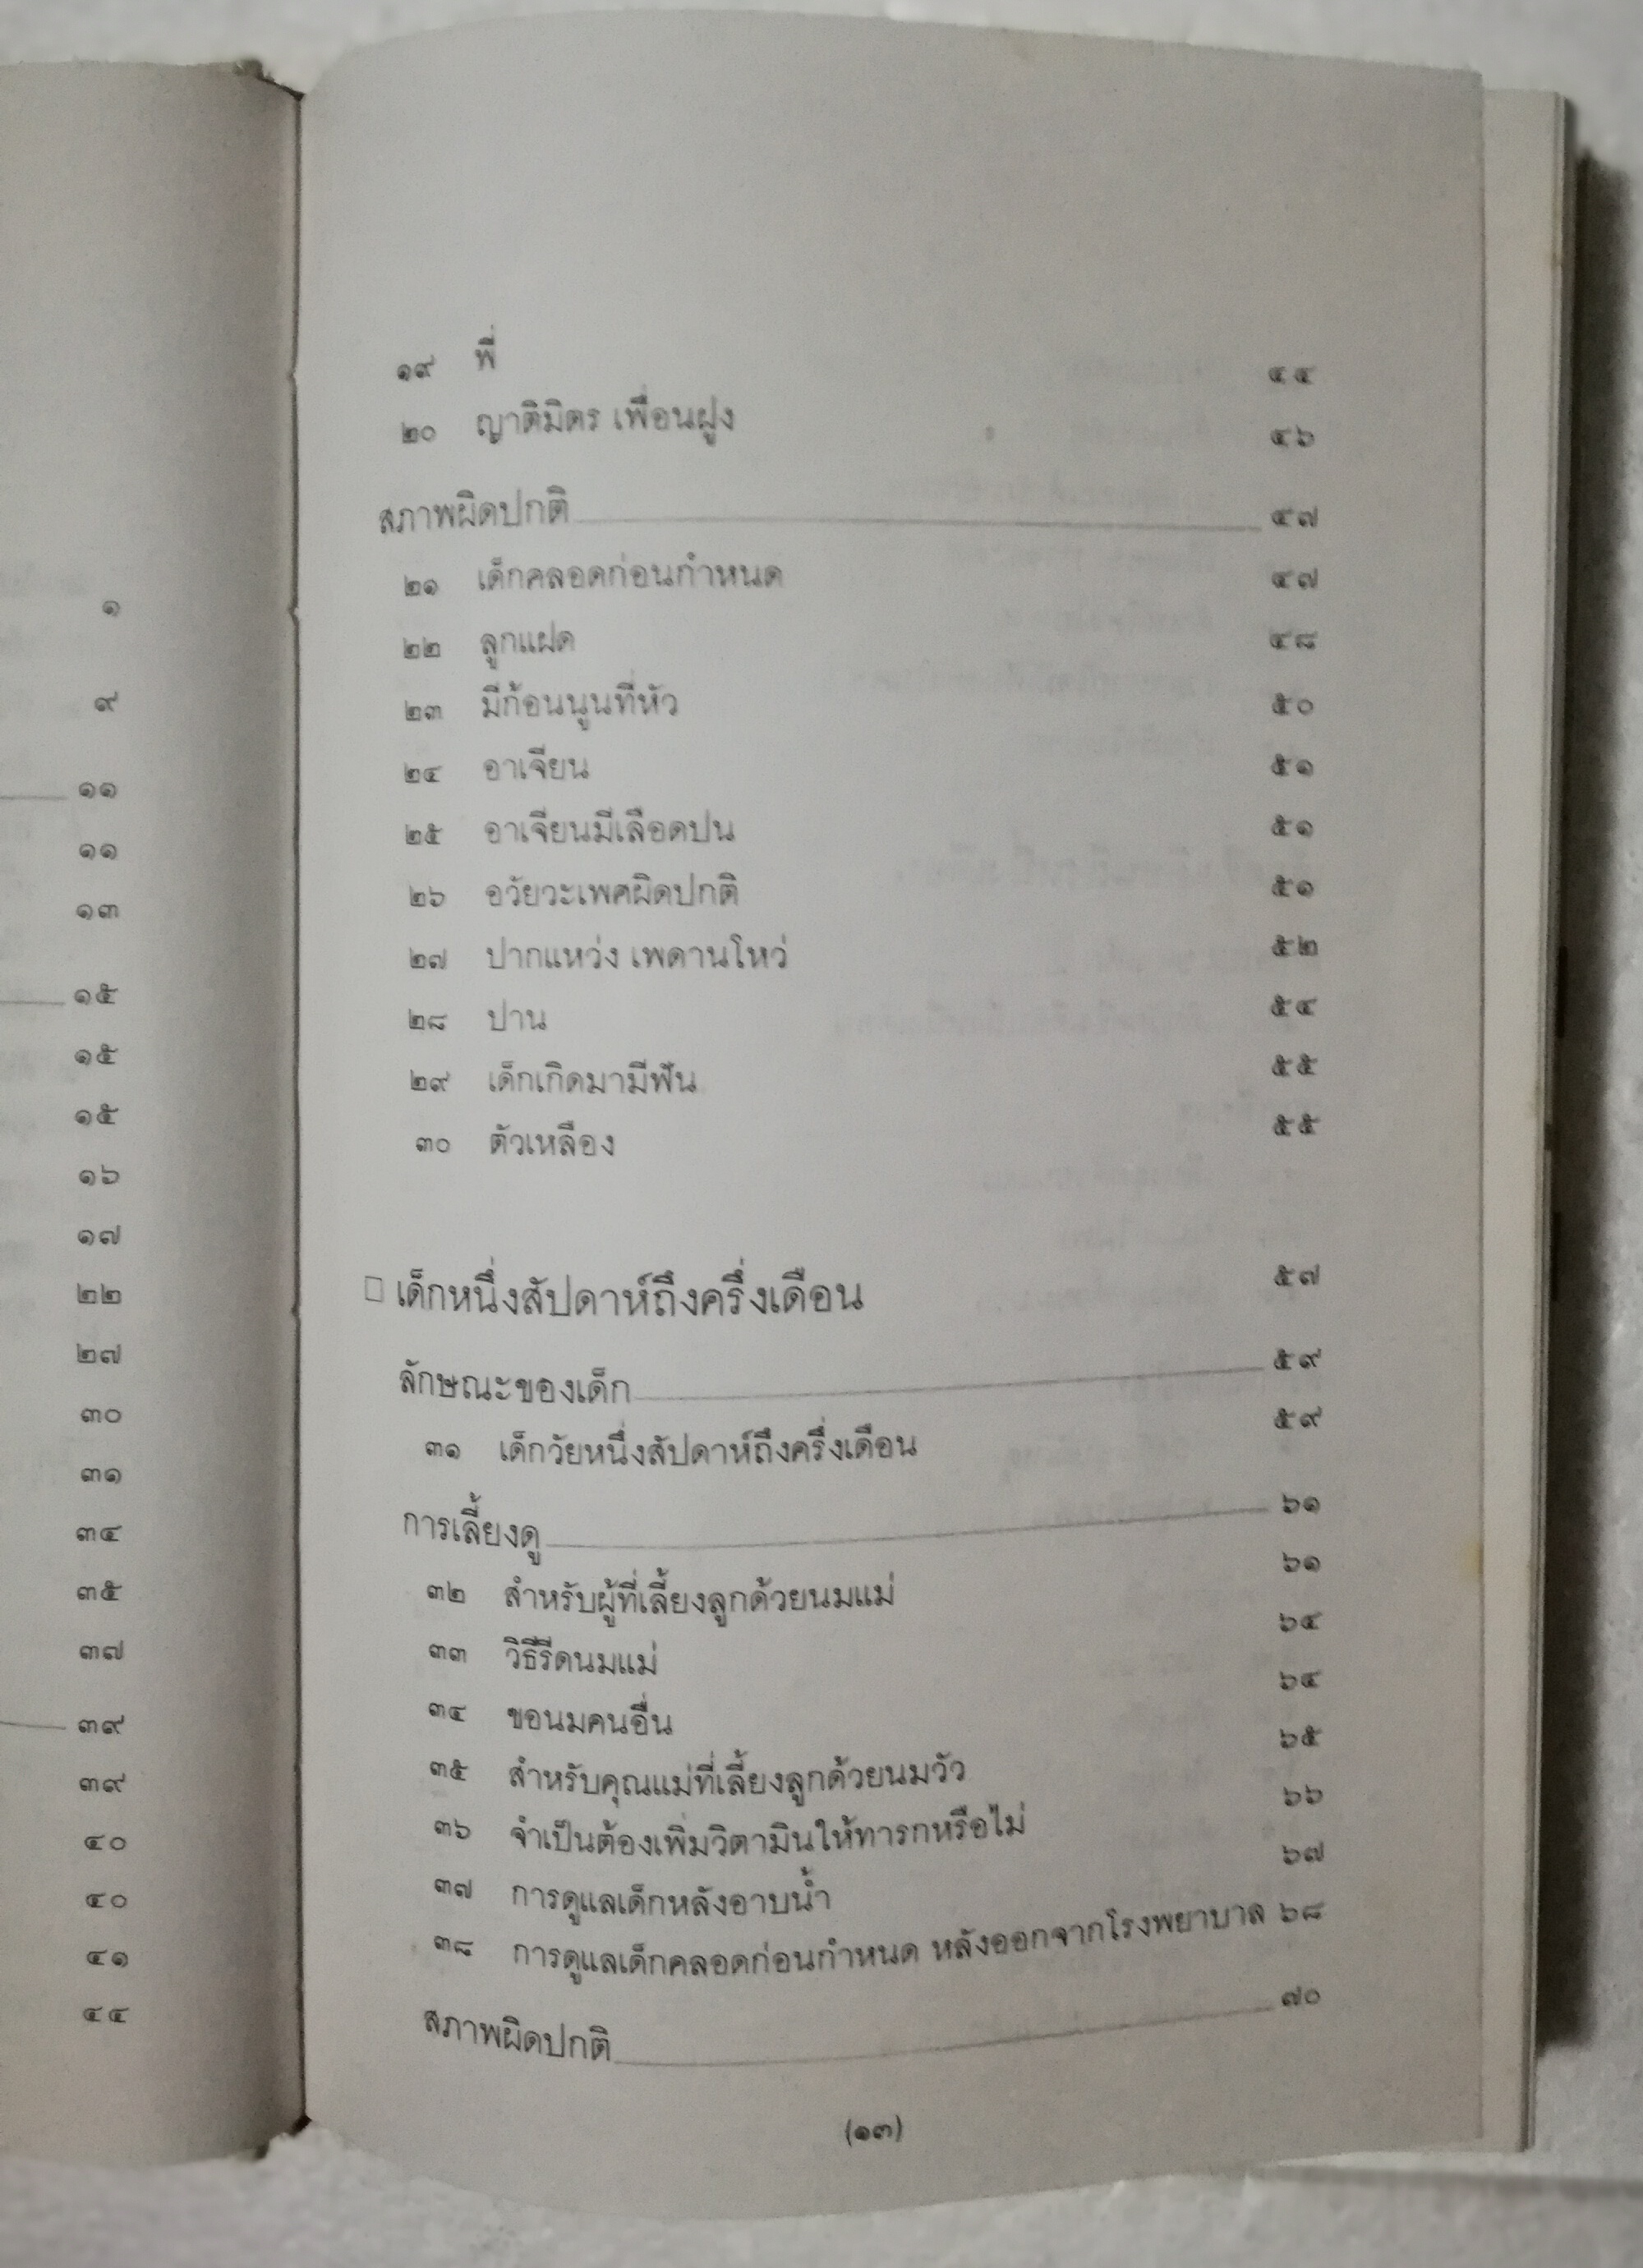 ๑
๙
๑๑
๑๑
๑๓
๑๕
๑๕
๑๕
๑๖
๑๗
๒๒
๒๗
๓๐
๓๑
๓๔
๓๕
๓๗
๓๙
๓๙
๔๐
๔๐
๔๑
๔๔
๑๙ พี่ ๔๔
๒๐ ญาติมิตร เพื่อนฝูง ๔๖
สภาพผิดปกติ ๔๗
๒๑ เด็กคลอดก่อนกำหนด ๔๗
๒๒ ลูกแฝด ๔๘
๒๓ มีก้อนนูนที่หัว ๕๐
๒๔ อาเจียน ๕๑
๒๕ อาเจียนมีเลือดปน ๕๑
๒๖ อวัยวะเพศผิดปกติ ๕๑
๒๗ ปากแหว่ง เพดานโหว่ ๕๒
๒๘ ปาน ๕๔
๒๙ เด็กเกิดมามีฟัน ๕๕
๓๐ ตัวเหลือง ๕๕
□ เด็กหนึ่งสัปดาห์ถึงครึ่งเดือน ๕๗
ลักษณะของเด็ก ๕๙
๓๑ เด็กวัยหนึ่งสัปดาห์ถึงครึ่งเดือน ๕๙
การเลี้ยงดู ๖๑
๓๒ สำหรับผู้ที่เลี้ยงลูกด้วยนมแม่ ๖๑
๓๓ วิธีรีดนมแม่ ๖๔
๓๔ ขอนมคนอื่น ๖๔
๓๕ สำหรับคุณแม่ที่เลี้ยงลูกด้วยนมวัว ๖๕
๓๖ จำเป็นต้องเพิ่มวิตามินให้ทารกหรือไม่ ๖๖
๓๗ การดูแลเด็กหลังอาบน้ำ ๖๗
๓๘ การดูแลเด็กคลอดก่อนกำหนด หลังออกจากโรงพยาบาล ๖๘
สภาพผิดปกติ ๗๐
(๑๓)